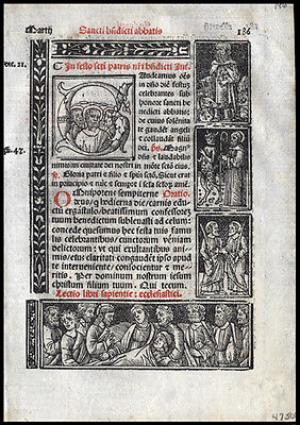 Martij Sancti bñdicti abbatis 186
In festo scti patris nři bñdicti Int.
Gaudeamus oēs
in dño diē festuȝ
celebrantes sub
honore sancti be
nedicti abbatis:
de cuius solēnita
te gaudēt angeli
et collaudāt filiū
dei. ps. Magn⁹
dñs et laudabilis
nimis: in ciuitate dei nostri in mōte sctō eius.
Gloria patri et filio et spūi sctō. Sicut erat
in principio et nūc et semper et ī sc̄la sc̄lorȝ amē.
Omnipotens sempiterne Oratio.
Deus, q hodierna die carnis edu
ctū ergastulo, beatissimum confessorē
tuum benedictum subleuasti ad celum:
concede quesumus hec festa tuis famu
lis celebrantibus, cunctorum veniam
delictorum: vt qui exultantibus ani
mis, eius claritati congaudēt ipso apud
te interueniente, consocientur et me
ritis. Per dominum nostrum iesum
christum filium tuum. Qui tecum.
Lectio libri sapientie: ecclesiastici.
ps. 47.